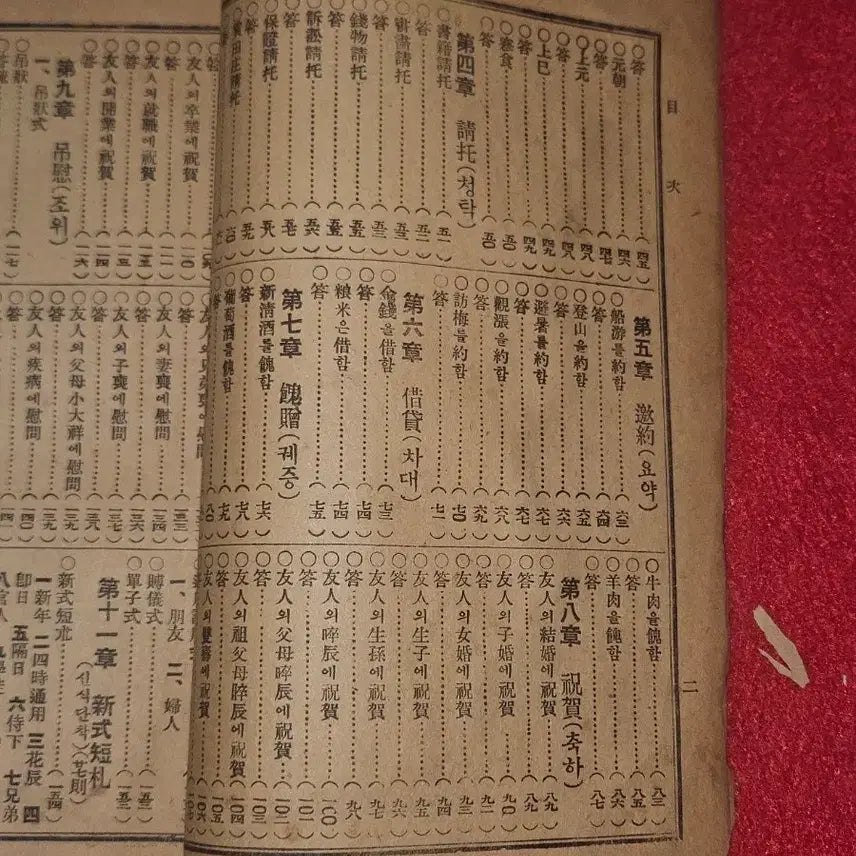 目次
○答……(四五)
○元朝……(四六)
答……(四七)
○上元……(四八)
答……(四八)
○上巳……(四九)
答……(四九)
○寒食……(五〇)
答……(五〇)
第四章 請托(청탁)
○書籍請托……(五一)
答……(五二)
○書畵請托……(五三)
答……(五三)
○錢物請托……(五五)
答……(五五)
○訴訟請托……(五六)
答……(五七)
○保證請托……(五八)
○答……(五九)
田庄請托……(六〇)
第五章 邀約(요약)
○船游를約함……(六三)
○答……(六四)
○登山을約함……(六五)
○答……(六六)
○避暑를約함……(六七)
○答……(六七)
○觀漲을約함……(六八)
○答……(六九)
○訪梅를約함……(七〇)
○答……(七一)
第六章 借貸(차대)
○金錢을借함……(七三)
○答……(七四)
○粮米은借함……(七四)
○答……(七五)
第七章 餽贈(궤증)
○新淸酒를餽함……(七六)
○答……(七九)
○葡萄酒를餽함……(八〇)
○牛肉을餽함……(八三)
○答……(八五)
○羊肉을餽함……(八六)
○答……(八七)
第八章 祝賀(축하)
○友人의結婚에祝賀……(八九)
○答……(八九)
○友人의子婚에祝賀……(九〇)
○答……(九一)
○友人의女婚에祝賀……(九三)
○答……(九四)
○友人의生子에祝賀……(九五)
○答……(九六)
○友人의生孫에祝賀……(九七)
○答……(九八)
○友人의晬辰에祝賀……(一〇〇)
○答……(一〇一)
○友人의父母晬辰에祝賀……(一〇二)
○答……(一〇三)
○友人의祖父母晬辰에祝賀……(一〇四)
○答……(一〇五)
○友人의雙壽에祝賀……(一〇六)
二
○友人의卒業에祝賀……(一一〇)
答……(一一一)
○友人의就職에祝賀……(一一二)
答……(一一三)
○友人의開業에祝賀……(一一四)
答……(一一六)
第九章 吊慰(조위)
一、吊狀式
○吊狀……(一一七)
○答……(一三三)
○友人의妻喪에慰問……(一三四)
○答……
○友人의子喪에慰問……(一三七)
○答……(一三八)
○友人의父母小大祥에慰問……(一三九)
○答……(一三九)
○友人의疾病에慰問……(一四〇)
○答……(一四一)
一、朋友 二、婦人
○賻儀式……(一五二)
○單子式……(一五三)
第十一章 新式短札
(신식단찰)(廿七則)
○新式短札……(一五四)
一新年 二四時通用 三花辰 四
卽日 五隔日 六侍下 七兄弟